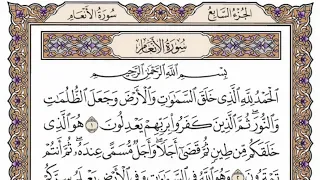 الجزء السابع سورة الأنعام
سورة الأنعام
بسم الله الرحمن الرحيم
الحمد لله الذي خلق السموات والأرض وجعل الظلمت
والنور ثم الذين كفروا بربهم يعدلون ١ هو الذي
خلقكم من طين ثم قضى أجلا وأجل مسمى عنده ثم أنتم
تمترون ٢ وهو الله في السموت وفي الأرض يعلم سركم